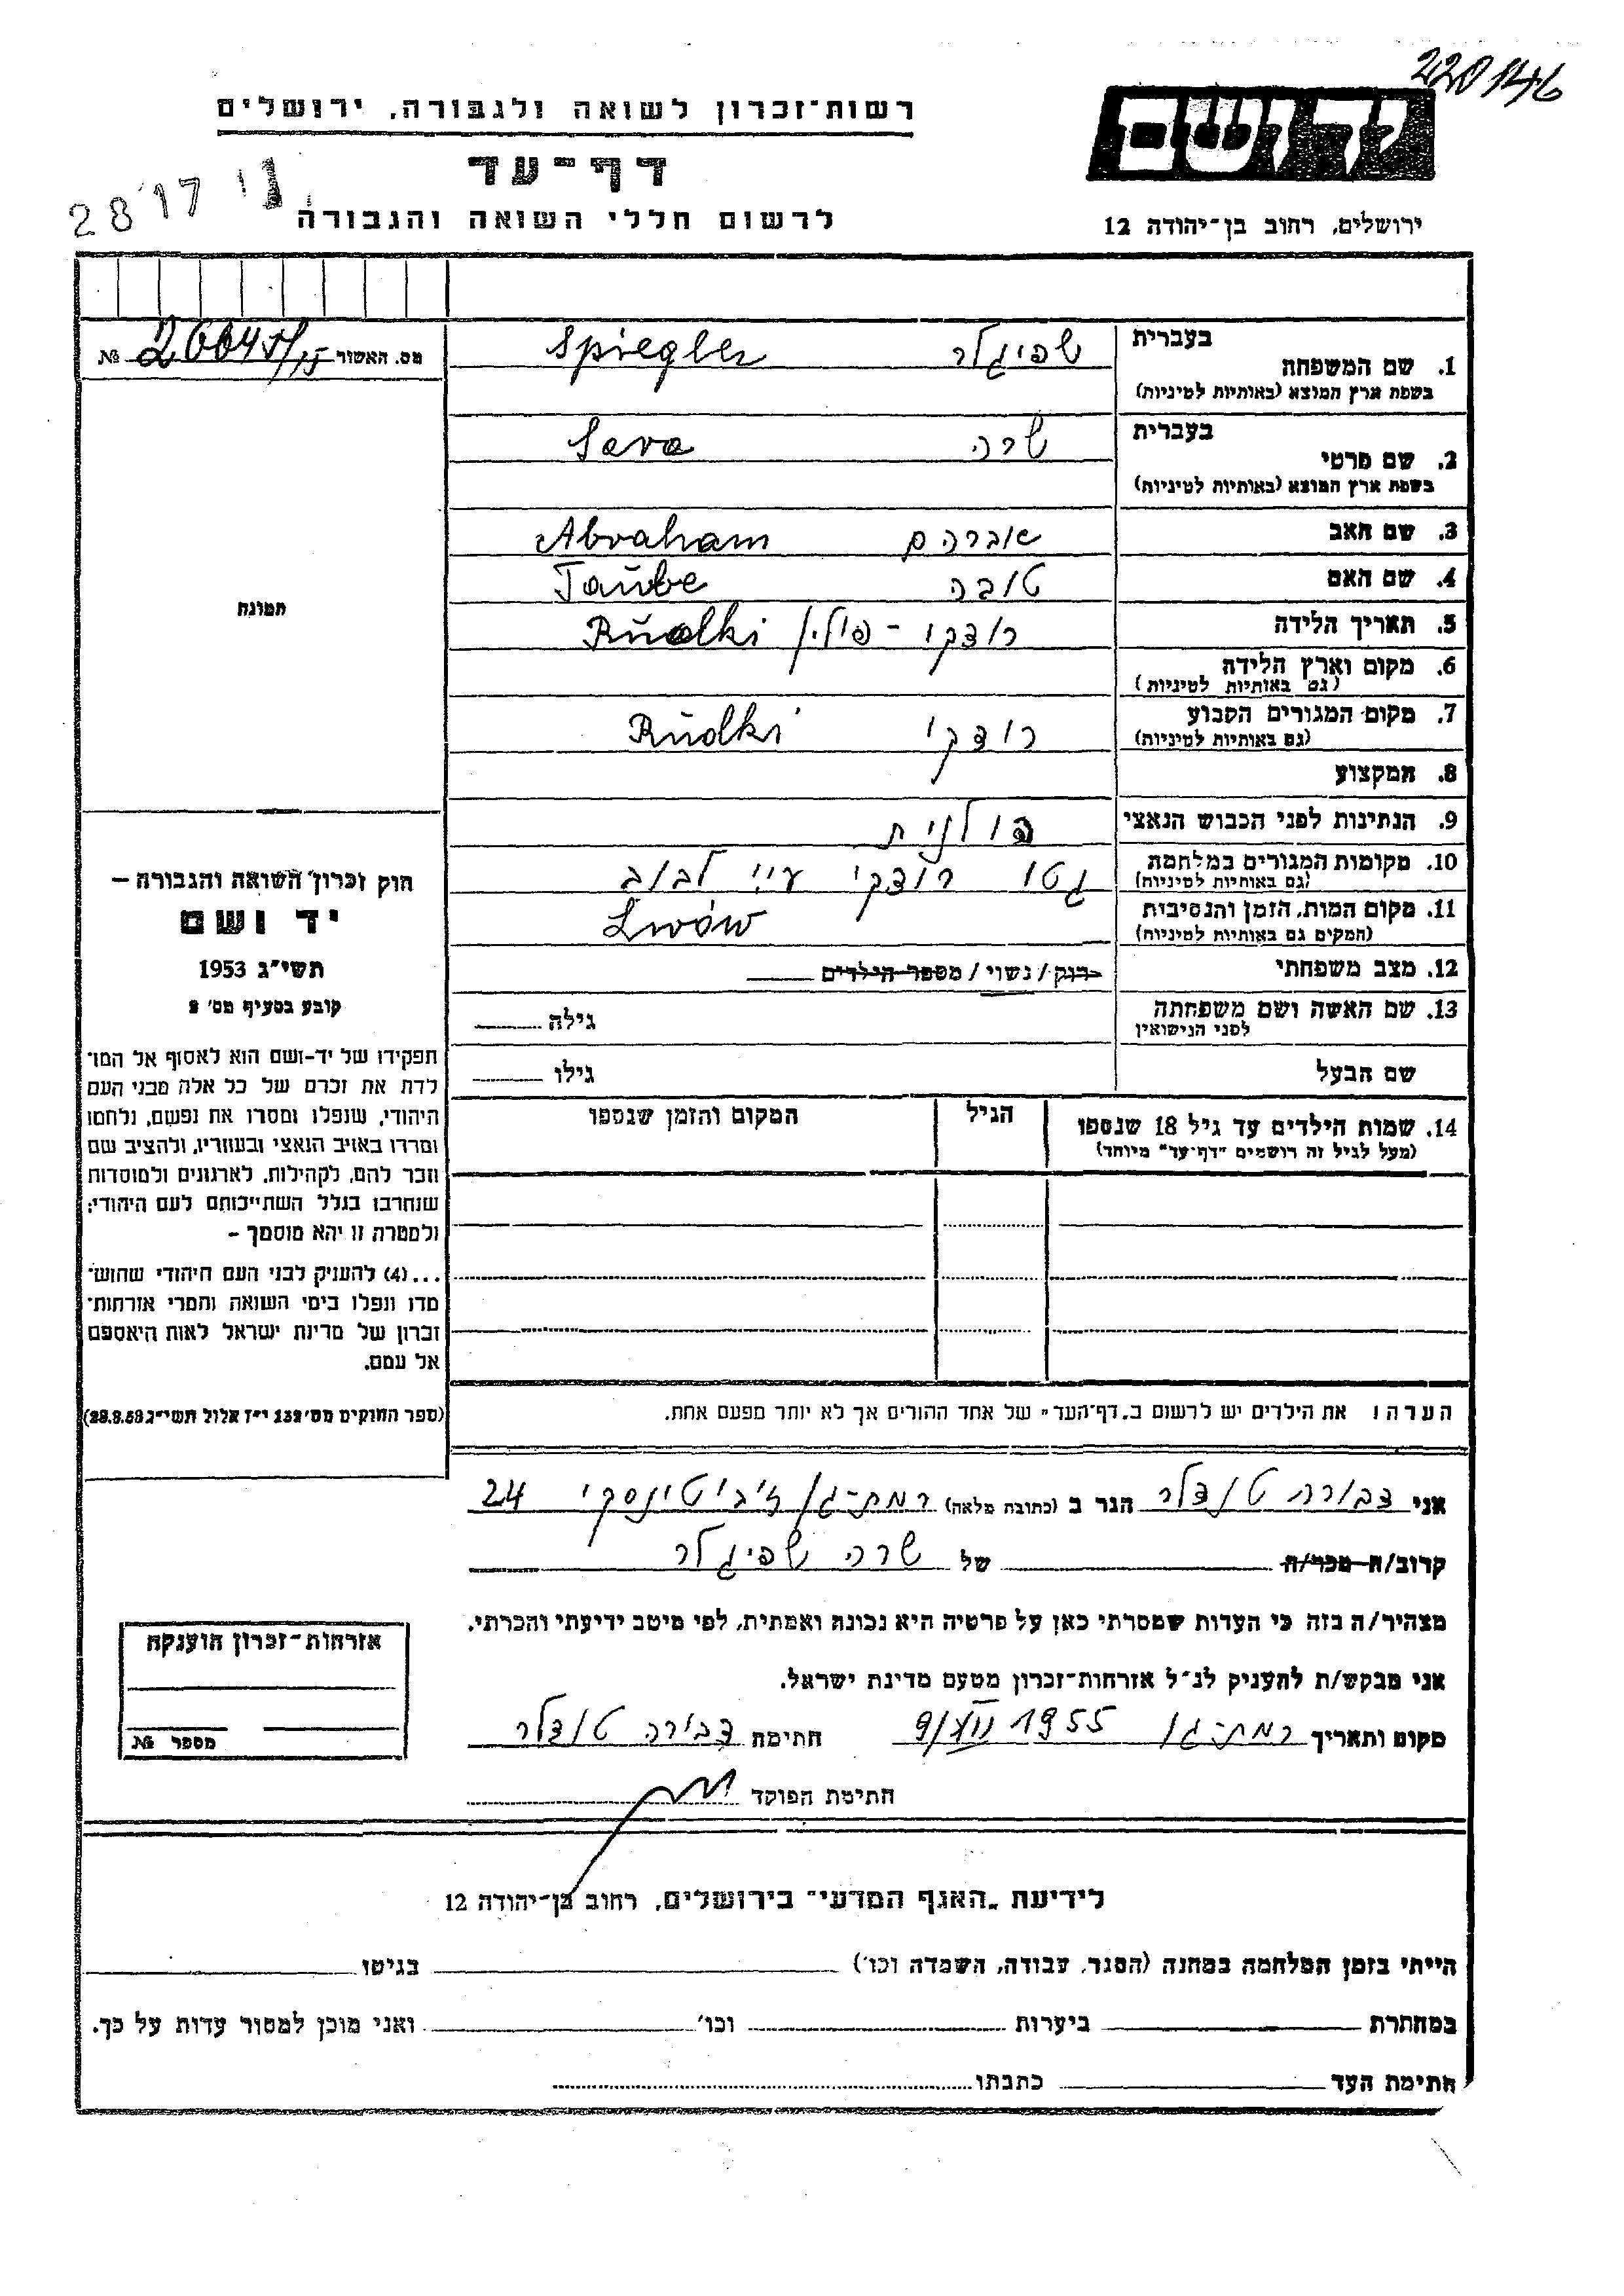 220146
יד ושם
רשות־זכרון לשואה ולגבורה, ירושלים
דף־עד
לרשום חללי השואה והגבורה
ירושלים, רחוב בן־יהודה 12
28 17
1. שם המשפחה בעברית שפיגלר Spiegler
בשפת ארץ המוצא (באותיות לטיניות)
מס. האשור №
2. שם פרטי בעברית שרה Sara
בשפת ארץ המוצא (באותיות לטיניות)
3. שם האב אברהם Abraham
4. שם האם טובה Taube
5. תאריך הלידה רודקי - פולין Rudki
6. מקום וארץ הלידה
(גם באותיות לטיניות)
7. מקום המגורים הקבוע רודקי Rudki
(גם באותיות לטיניות)
8. המקצוע
9. הנתינות לפני הכבוש הנאצי פולנית
10. מקומות המגורים במלחמה גטו רודקי ע״י לבוב
(גם באותיות לטיניות)
11. מקום המות, הזמן והנסיבות Lwów
(המקום גם באותיות לטיניות)
12. מצב משפחתי רוק / נשוי / מספר הילדים
13. שם האשה ושם משפחתה גילה
לפני הנישואין
שם הבעל גילו
14. שמות הילדים עד גיל 18 שנספו הגיל המקום והזמן שנספו
(מעל לגיל זה רושמים "דף־עד" מיוחד)
הערה: את הילדים יש לרשום ב„דף־העד" של אחד ההורים אך לא יותר מפעם אחת.
תמונה
חוק זכרון השואה והגבורה –
יד ושם
תשי״ג 1953
קובע בסעיף מס׳ 2
תפקידו של יד-ושם הוא לאסוף אל המו־
לדת את זכרם של כל אלה מבני העם
היהודי, שנפלו ומסרו את נפשם, נלחמו
ומרדו באויב הנאצי ובעוזריו, ולהציב שם
וזכר להם, לקהילות, לארגונים ולמוסדות
שנחרבו בגלל השתייכותם לעם היהודי;
ולמטרה זו יהא מוסמך –
...(4) להעניק לבני העם היהודי שהוש־
מדו ונפלו בימי השואה והמרי אזרחות־
זכרון של מדינת ישראל לאות היאספם
אל עמם.
(ספר החוקים מס׳ 132 י״ז אלול תשי״ג 28.8.53)
אני דבורה טנדלר הגר ב (כתובת מלאה) רמת-גן ז׳בוטינסקי 24
קרוב/ה מכר/ה של שרה שפיגלר
מצהיר/ה בזה כי העדות שמסרתי כאן על פרטיה היא נכונה ואמתית, לפי מיטב ידיעתי והכרתי.
אני מבקש/ת להעניק לנ״ל אזרחות־זכרון מטעם מדינת ישראל.
מקום ותאריך רמת-גן 1955 חתימת דבורה טנדלר
חתימת הפוקד
אזרחות־זכרון הוענקה
מספר №
לידיעת „האגף המדעי" בירושלים, רחוב בן־יהודה 12
הייתי בזמן המלחמה במחנה (הסגר, עבודה, השמדה וכו׳) בגיטו
במחתרת ביערות וכו׳ ואני מוכן למסור עדות על כך.
חתימת העד כתבתו